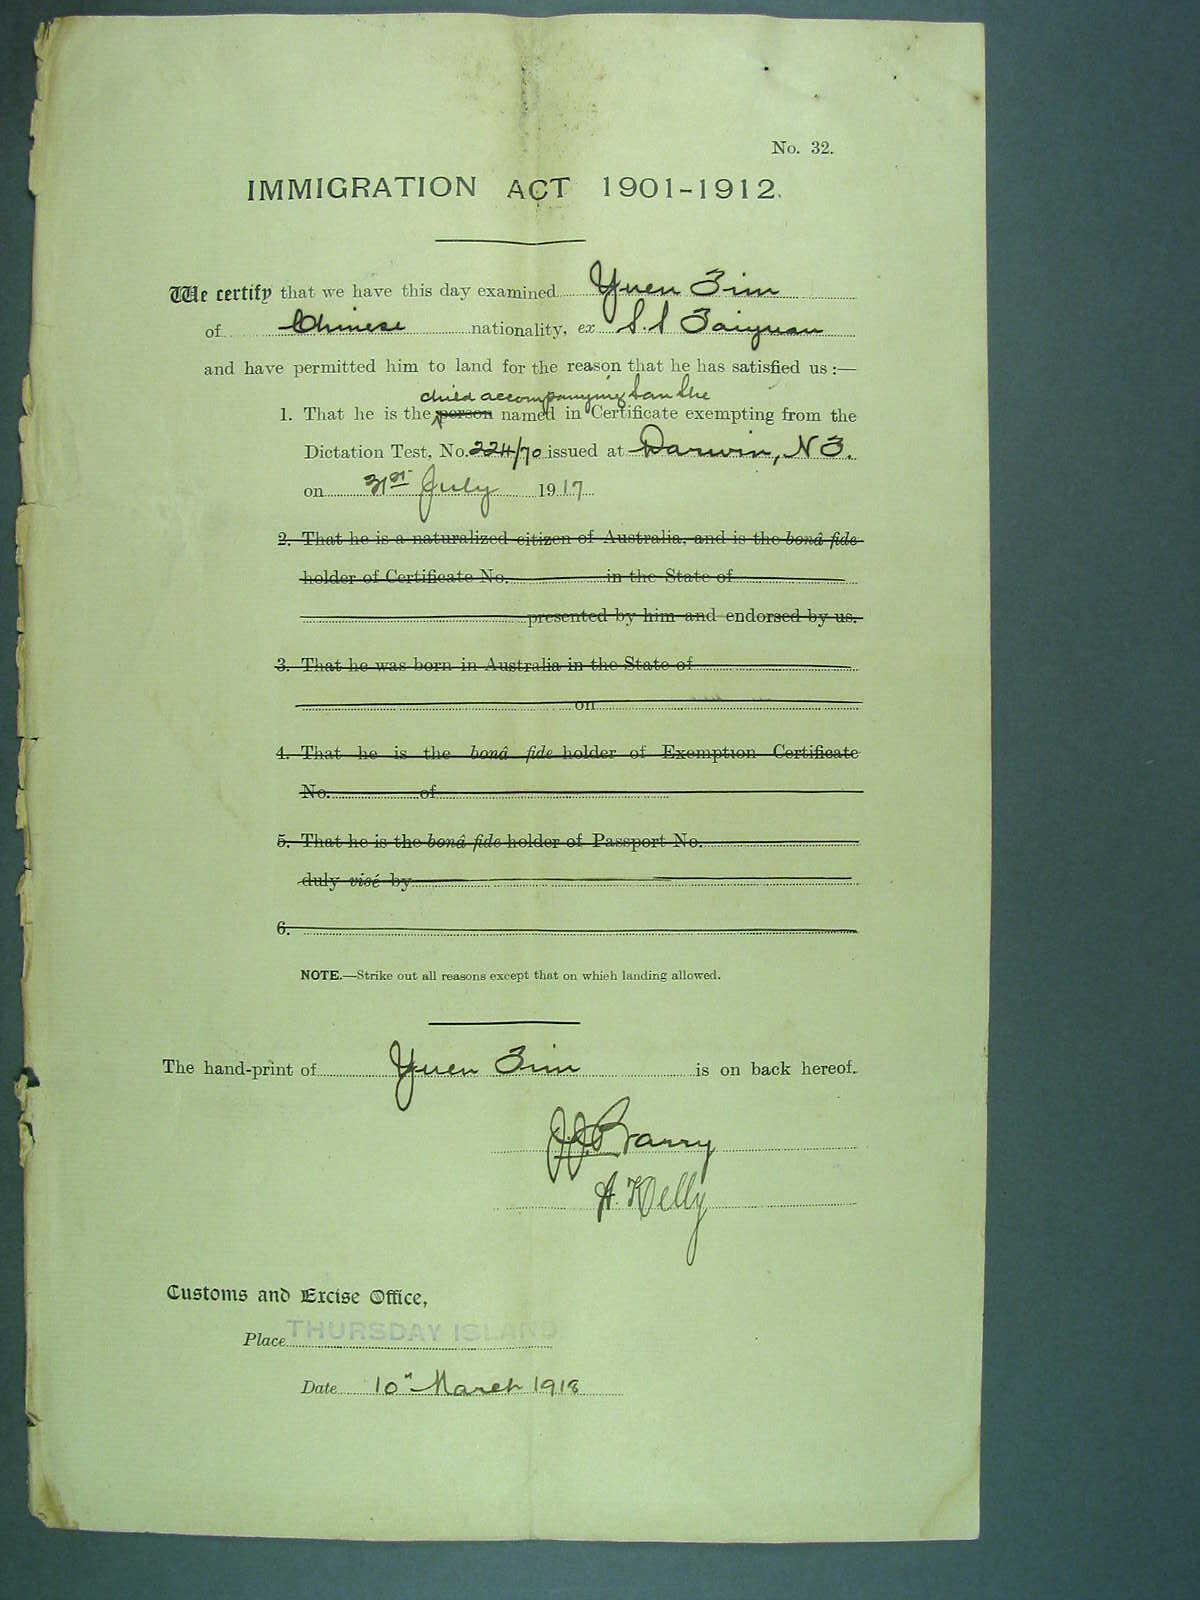 No. 32.
IMMIGRATION ACT 1901-1912.
We certify that we have this day examined Yuen Tim
of Chinese nationality, ex S.S Taiyuan
and have permitted him to land for the reason that he has satisfied us :—
child accompanying Lau She
1. That he is the person named in Certificate exempting from the
Dictation Test, No. 224/70 issued at Darwin, N T.
on 31st July 1917
2. That he is a naturalized citizen of Australia, and is the bonâ fide
holder of Certificate No. in the State of
presented by him and endorsed by us.
3. That he was born in Australia in the State of
on
4. That he is the bonâ fide holder of Exemption Certificate
No. of
5. That he is the bonâ fide holder of Passport No.
duly visé by
6.
NOTE.—Strike out all reasons except that on which landing allowed.
The hand-print of Yuen Tim is on back hereof.
J.J. Barry
A. Kelly
Customs and Excise Office,
Place THURSDAY ISLAND
Date 10th March 1918